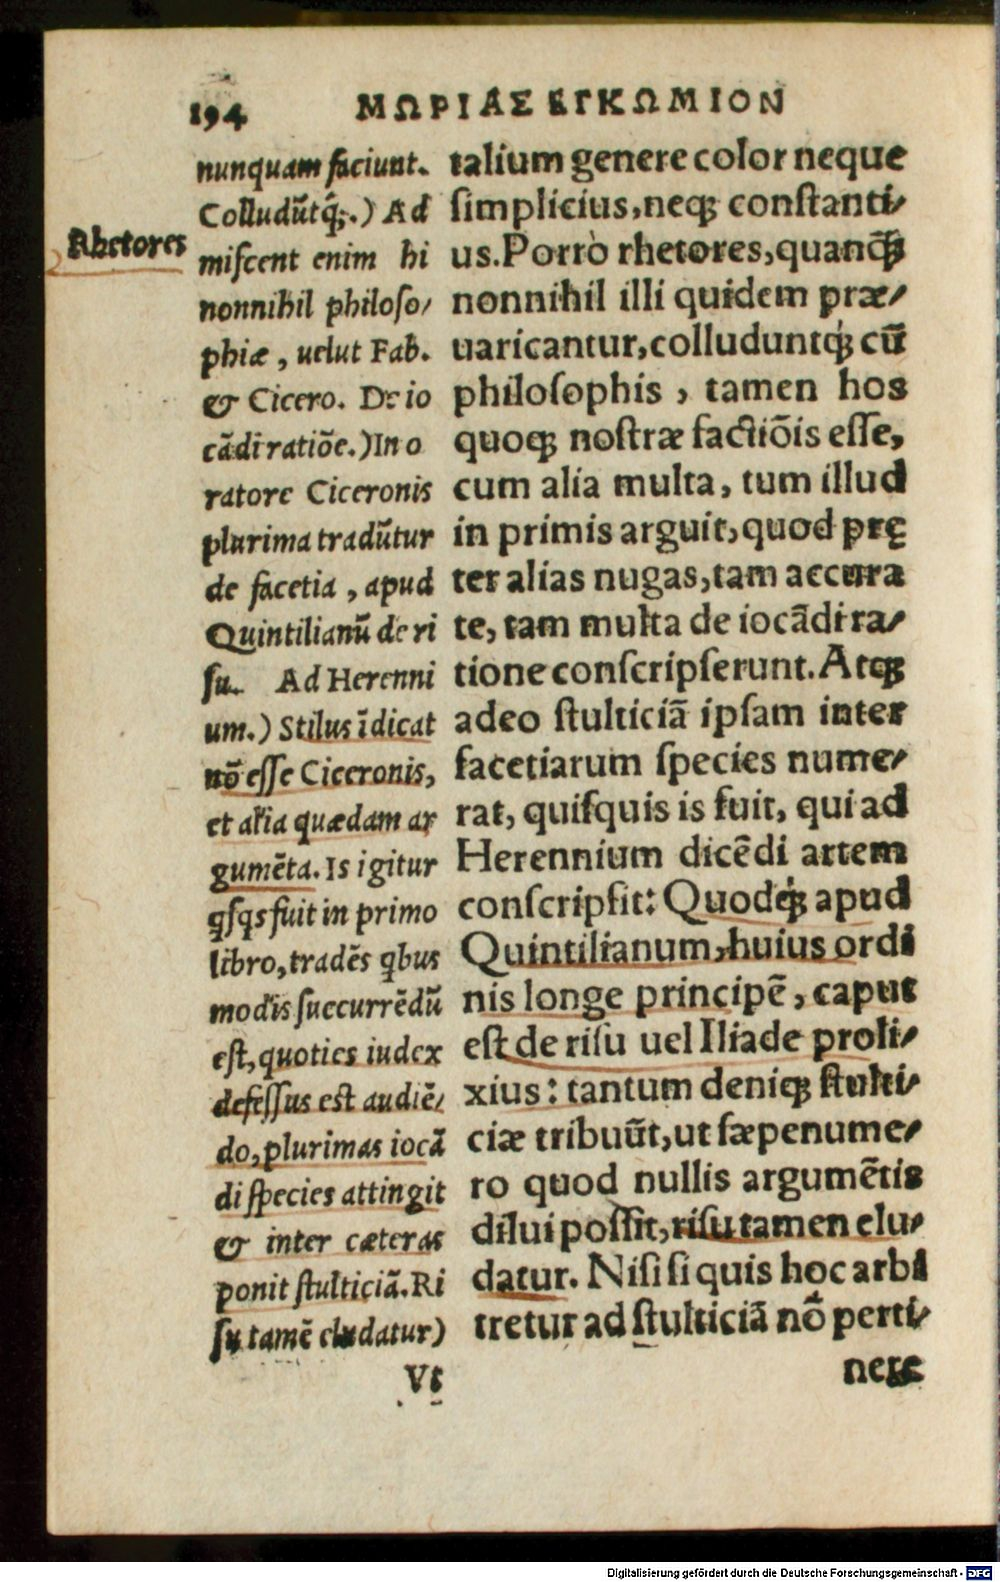 194
ΜΩΡΙΑΣ ΕΓΚΩΜΙΟΝ
Rhetores
nunquam faciunt.
Colludũtq́;.) Ad
miſcent enim hi
nonnihil philoſo⸗
phiæ, uelut Fab.
& Cicero. De io
cãdi ratiõe.) In o
ratore Ciceronis
plurima tradũtur
de facetia, apud
Quintilianũ de ri
ſu. Ad Herenni
um.) Stilus ĩdicat
nõ eſſe Ciceronis,
et alia quædam ar
gumẽta. Is igitur
ꝗſꝗs fuit in primo
libro, tradẽs ꝗbus
modis ſuccurrẽdũ
eſt, quoties iudex
defeſſus eſt audiẽ⸗
do, plurimas iocã
di ſpecies attingit
& inter cæteras
ponit ſtulticiã. Ri
ſu tamẽ eludatur)
Vt
talium genere color neque
ſimplicius, neq; conſtanti⸗
us. Porrò rhetores, quanq̃
nonnihil illi quidem præ⸗
uaricantur, colluduntq́; cũ
philoſophis, tamen hos
quoq; noſtræ factiõis eſſe,
cum alia multa, tum illud
in primis arguit, quod pręter
ter alias nugas, tam accura
te, tam multa de iocãdi ra⸗
tione conſcripſerunt. Atq;
adeo ſtulticiã ipſam inter
facetiarum ſpecies nume⸗
rat, quiſquis is fuit, qui ad
Herennium dicẽdi artem
conſcripſit: Quodq́; apud
Quintilianum, huius ordi
nis longe principẽ, caput
eſt de riſu uel Iliade proli⸗
xius: tantum deniq; ſtulti⸗
ciæ tribuũt, ut ſæpenume⸗
ro quod nullis argumẽtis
dilui poſſit, riſu tamen elu⸗
datur. Niſi ſi quis hoc arbi
tretur ad ſtulticiã nõ perti⸗
nere
Digitalisierung gefördert durch die Deutsche Forschungsgemeinschaft - DFG